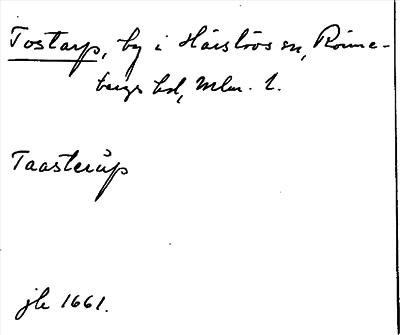 Tostarp, by i Hårslövs sn, Rönne-
bergs hd, Mlm. l.
Taasterup
jb 1661.